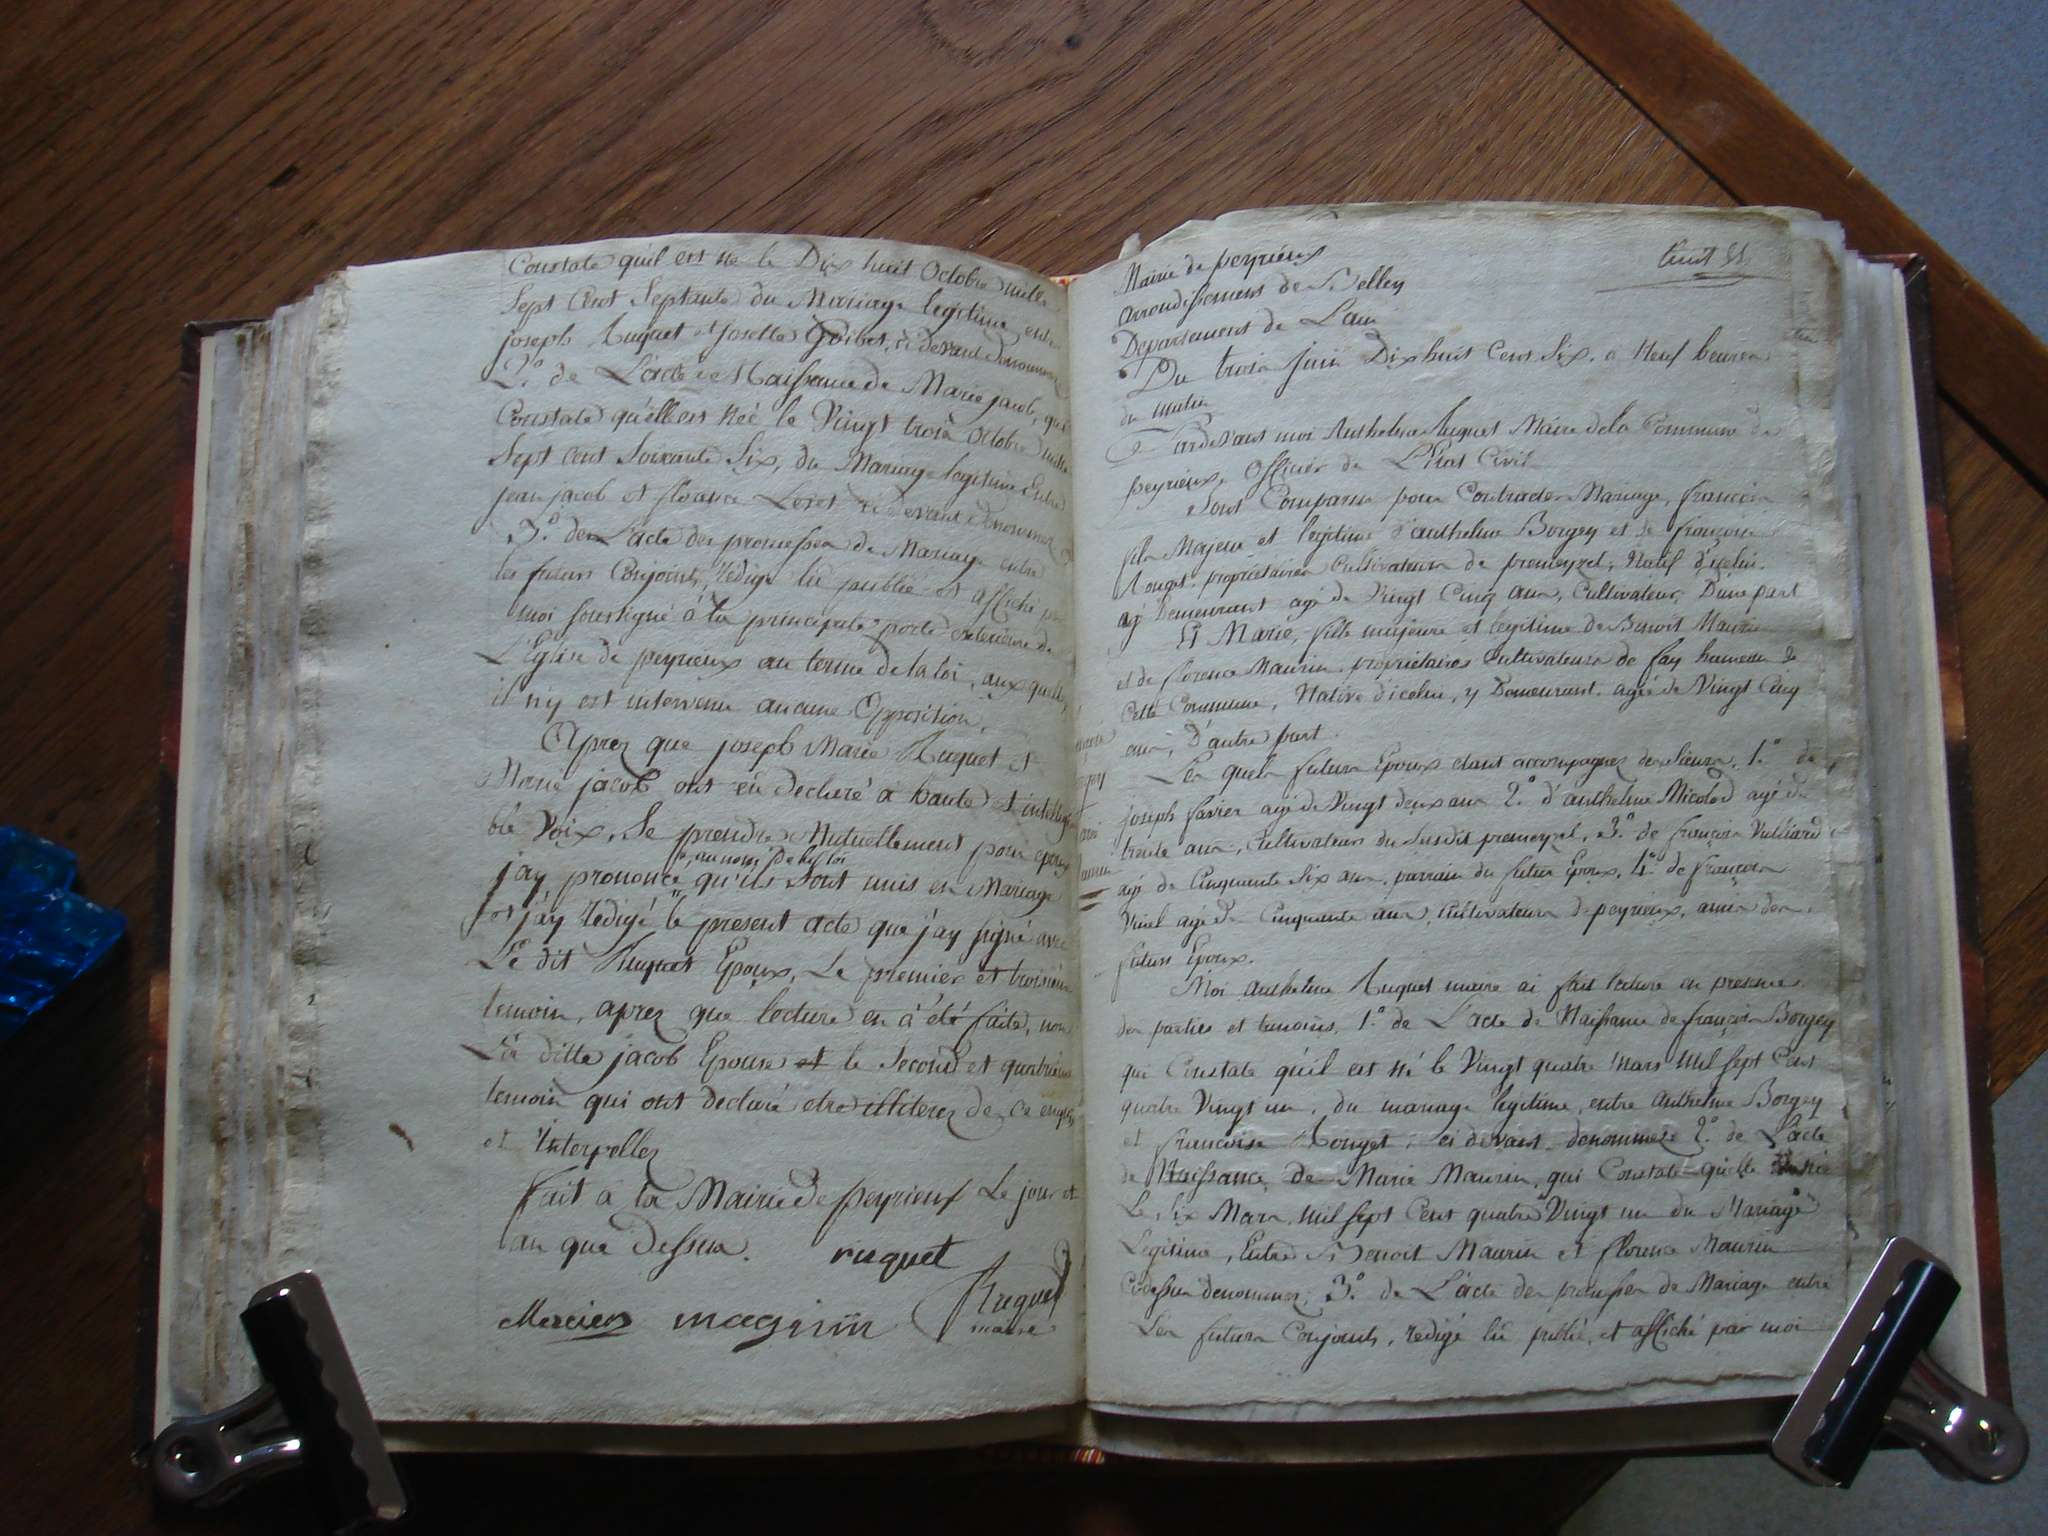 Constate qu'il est né le Dix huit Octobre mille
Sept Cent Septante du Mariage legitime entre
joseph Ruquet et Josette Goibet, ci devant denommés
2.º de L'acte de Naissance de Marie jacob, qui
Constate qu'elle est Née le Vingt trois Octobre mille
Sept cent Soixante Six, du Mariage legitime Entre
jean jacob et florence ci devant denommés
3.º de L'acte des promesses de Mariage entre
les futurs Conjoints, rédigé lû publié et affiché par
moi soussigné à la principale porte exterieure de
L'Eglise de peyrieux au terme de la loi, aux quelles
il n'y est intervenu aucune Opposition.
Aprez que joseph Marie Ruquet et
Marie jacob ont eû declaré à haute et intelligi
ble Voix, Se prendre Mutuellement pour epoux
, au nom de la loi
j'ay prononcé qu'ils Sont unis en Mariage
et j'ay redigé le present acte que j'ay signé avec
Le dit Ruquet Epoux, Le premier et troisieme
temoin, aprez que lecture en à été faite, non
La ditte jacob Epouse et le Second et quatrieme
temoin qui ont declaré etre illiterez de ce enquis
et Interpellez
fait à la Mairie de peyrieux Le jour et
an que Dessus. ruquet
Mercier magnin Ruquet
maire
Mairie de peyrieux
arrondissement de Belley
Departement de L'ain
Du trois juin Dix huit Cent Six, à Neuf heures
du matin
Pardevant moi Anthelme Ruquet Maire de la Commune de
peyrieux, Officier de L'Etat Civil
Sont Comparus pour Contracter Mariage, françois
fils Majeur et legitime d'anthelme Borgey et de françoise
Rouget, propriétaires Cultivateurs de premeyzel, Natif d'icelui,
ay Demeurant agé de Vingt Cinq ans, Cultivateur, D'une part
Et Marie, fille majeure et legitime de Benoit Maurin
et de florence Maurin, proprietaires Cultivateurs de fay hameau de
Cette Commune, Native d'icelui, y Demeurant, agée de Vingt Cinq
ans, D'autre part.
Les quels futurs Epoux étant accompagnez des Sieurs, 1.º de
joseph favier agé de Vingt deux ans 2.º d'anthelme Nicolod agé de
trente ans, Cultivateurs du Susdit premeyzel, 3.º de françois Vulliard
agé de Cinquante Six ans, parrain du futur Epoux, 4.º de françois
Vuiel agé de Cinquante ans, Cultivateurs de peyrieux, amis des
futurs Epoux.
Moi anthelme Ruquet maire ai fait lecture en presence
des parties et temoins, 1.º de L'acte de Naissance de françois Borgey
qui Constate qu'il est né le Vingt quatre Mars Mil Sept Cent
quatre Vingt un, du mariage legitime, entre anthelme Borgey
et françoise Rouget, ci devant denommez 2.º de L'acte
de Naissance de Marie Maurin, qui Constate qu'elle est Née
Le Six Mars, Mil Sept Cent quatre Vingt un du Mariage
Legitime, Entre Benoit Maurin et florence Maurin
Cidessus denommez, 3.º de L'acte des promesses de Mariage entre
Les futurs Conjoints, redigé lû publié, et affiché par moi